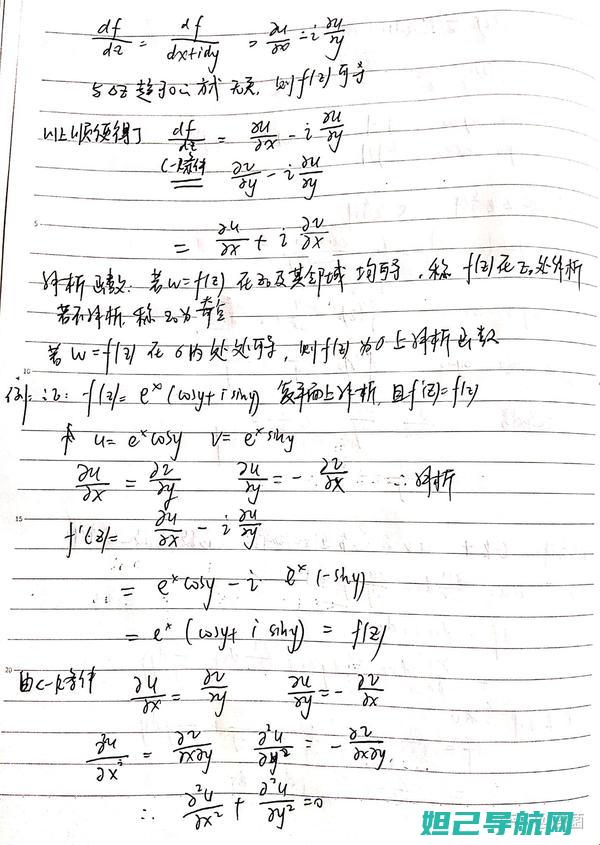 df/dz = df/dx+idy = ∂u/∂x - i ∂u/∂y
与Δz趋于0的方式无关, 则f(z)可导
以上顺便得了 df/dz = ∂u/∂x - i ∂u/∂y
C-R条件 ∂v/∂y - i ∂u/∂y
= ∂u/∂x + i ∂v/∂x
5
解析函数: 若w=f(z) 在z₀及其邻域 均可导, 称 f(z)在z₀处解析
若不解析, 称z₀为奇点
若w=f(z) 在σ内处处可导, 则f(z)为σ上解析函数
10
例: 证: f(z)= eˣ(cosy+isiny) 复平面上解析, 且f'(z)=f(z)
u= eˣcosy v= eˣsiny
∂u/∂x = ∂v/∂y ∂u/∂y = - ∂v/∂x ∴解析
15
f'(z)= ∂u/∂x - i ∂u/∂y
= eˣcosy - i eˣ(-siny)
= eˣ (cosy+ i siny) = f(z)
20
由C-R条件 ∂u/∂x = ∂v/∂y ∂u/∂y = - ∂v/∂x
∂²u/∂x² = ∂²v/∂x∂y ∂²u/∂y² = - ∂²v/∂x∂y.
∴ ∂²u/∂x² + ∂²u/∂y² =0
妲己导航网